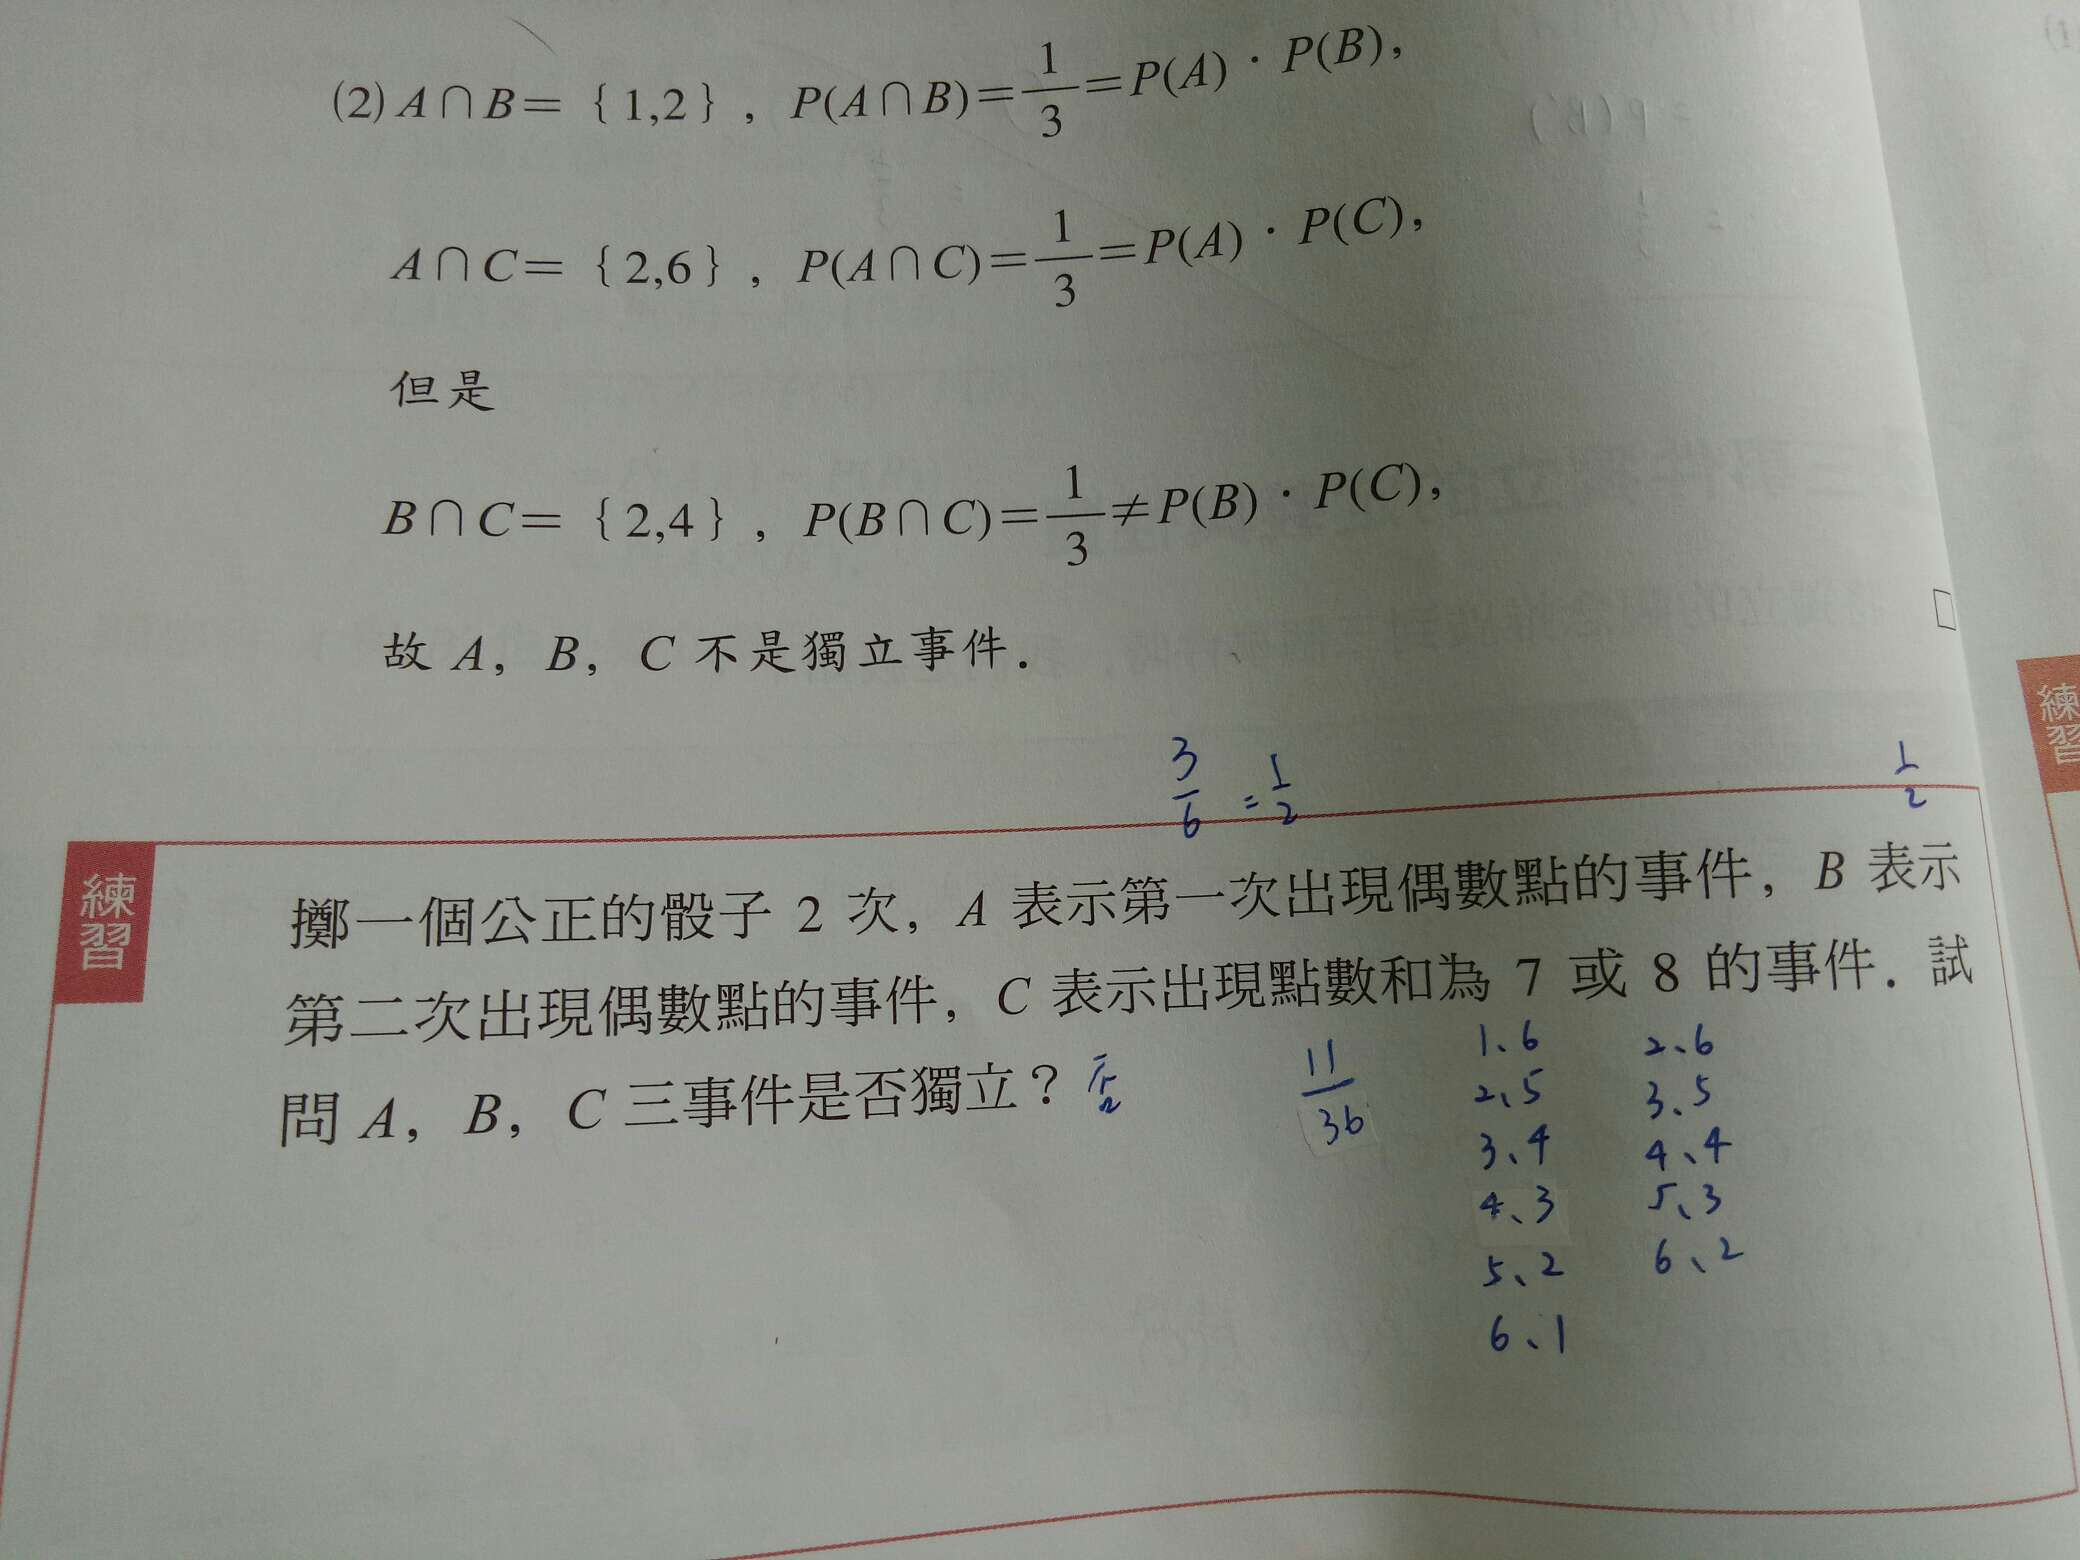 (2) A∩B={1,2}, P(A∩B)=1/3=P(A)·P(B),
A∩C={2,6}, P(A∩C)=1/3=P(A)·P(C),
但是
B∩C={2,4}, P(B∩C)=1/3≠P(B)·P(C),
故 A, B, C 不是獨立事件.
3/6 =1/2
1/2
練習
練習
擲一個公正的骰子 2 次, A 表示第一次出現偶數點的事件, B 表示
第二次出現偶數點的事件, C 表示出現點數和為 7 或 8 的事件. 試
問 A, B, C 三事件是否獨立? 否
11/36
1、6 2、6
2、5 3、5
3、4 4、4
4、3 5、3
5、2 6、2
6、1